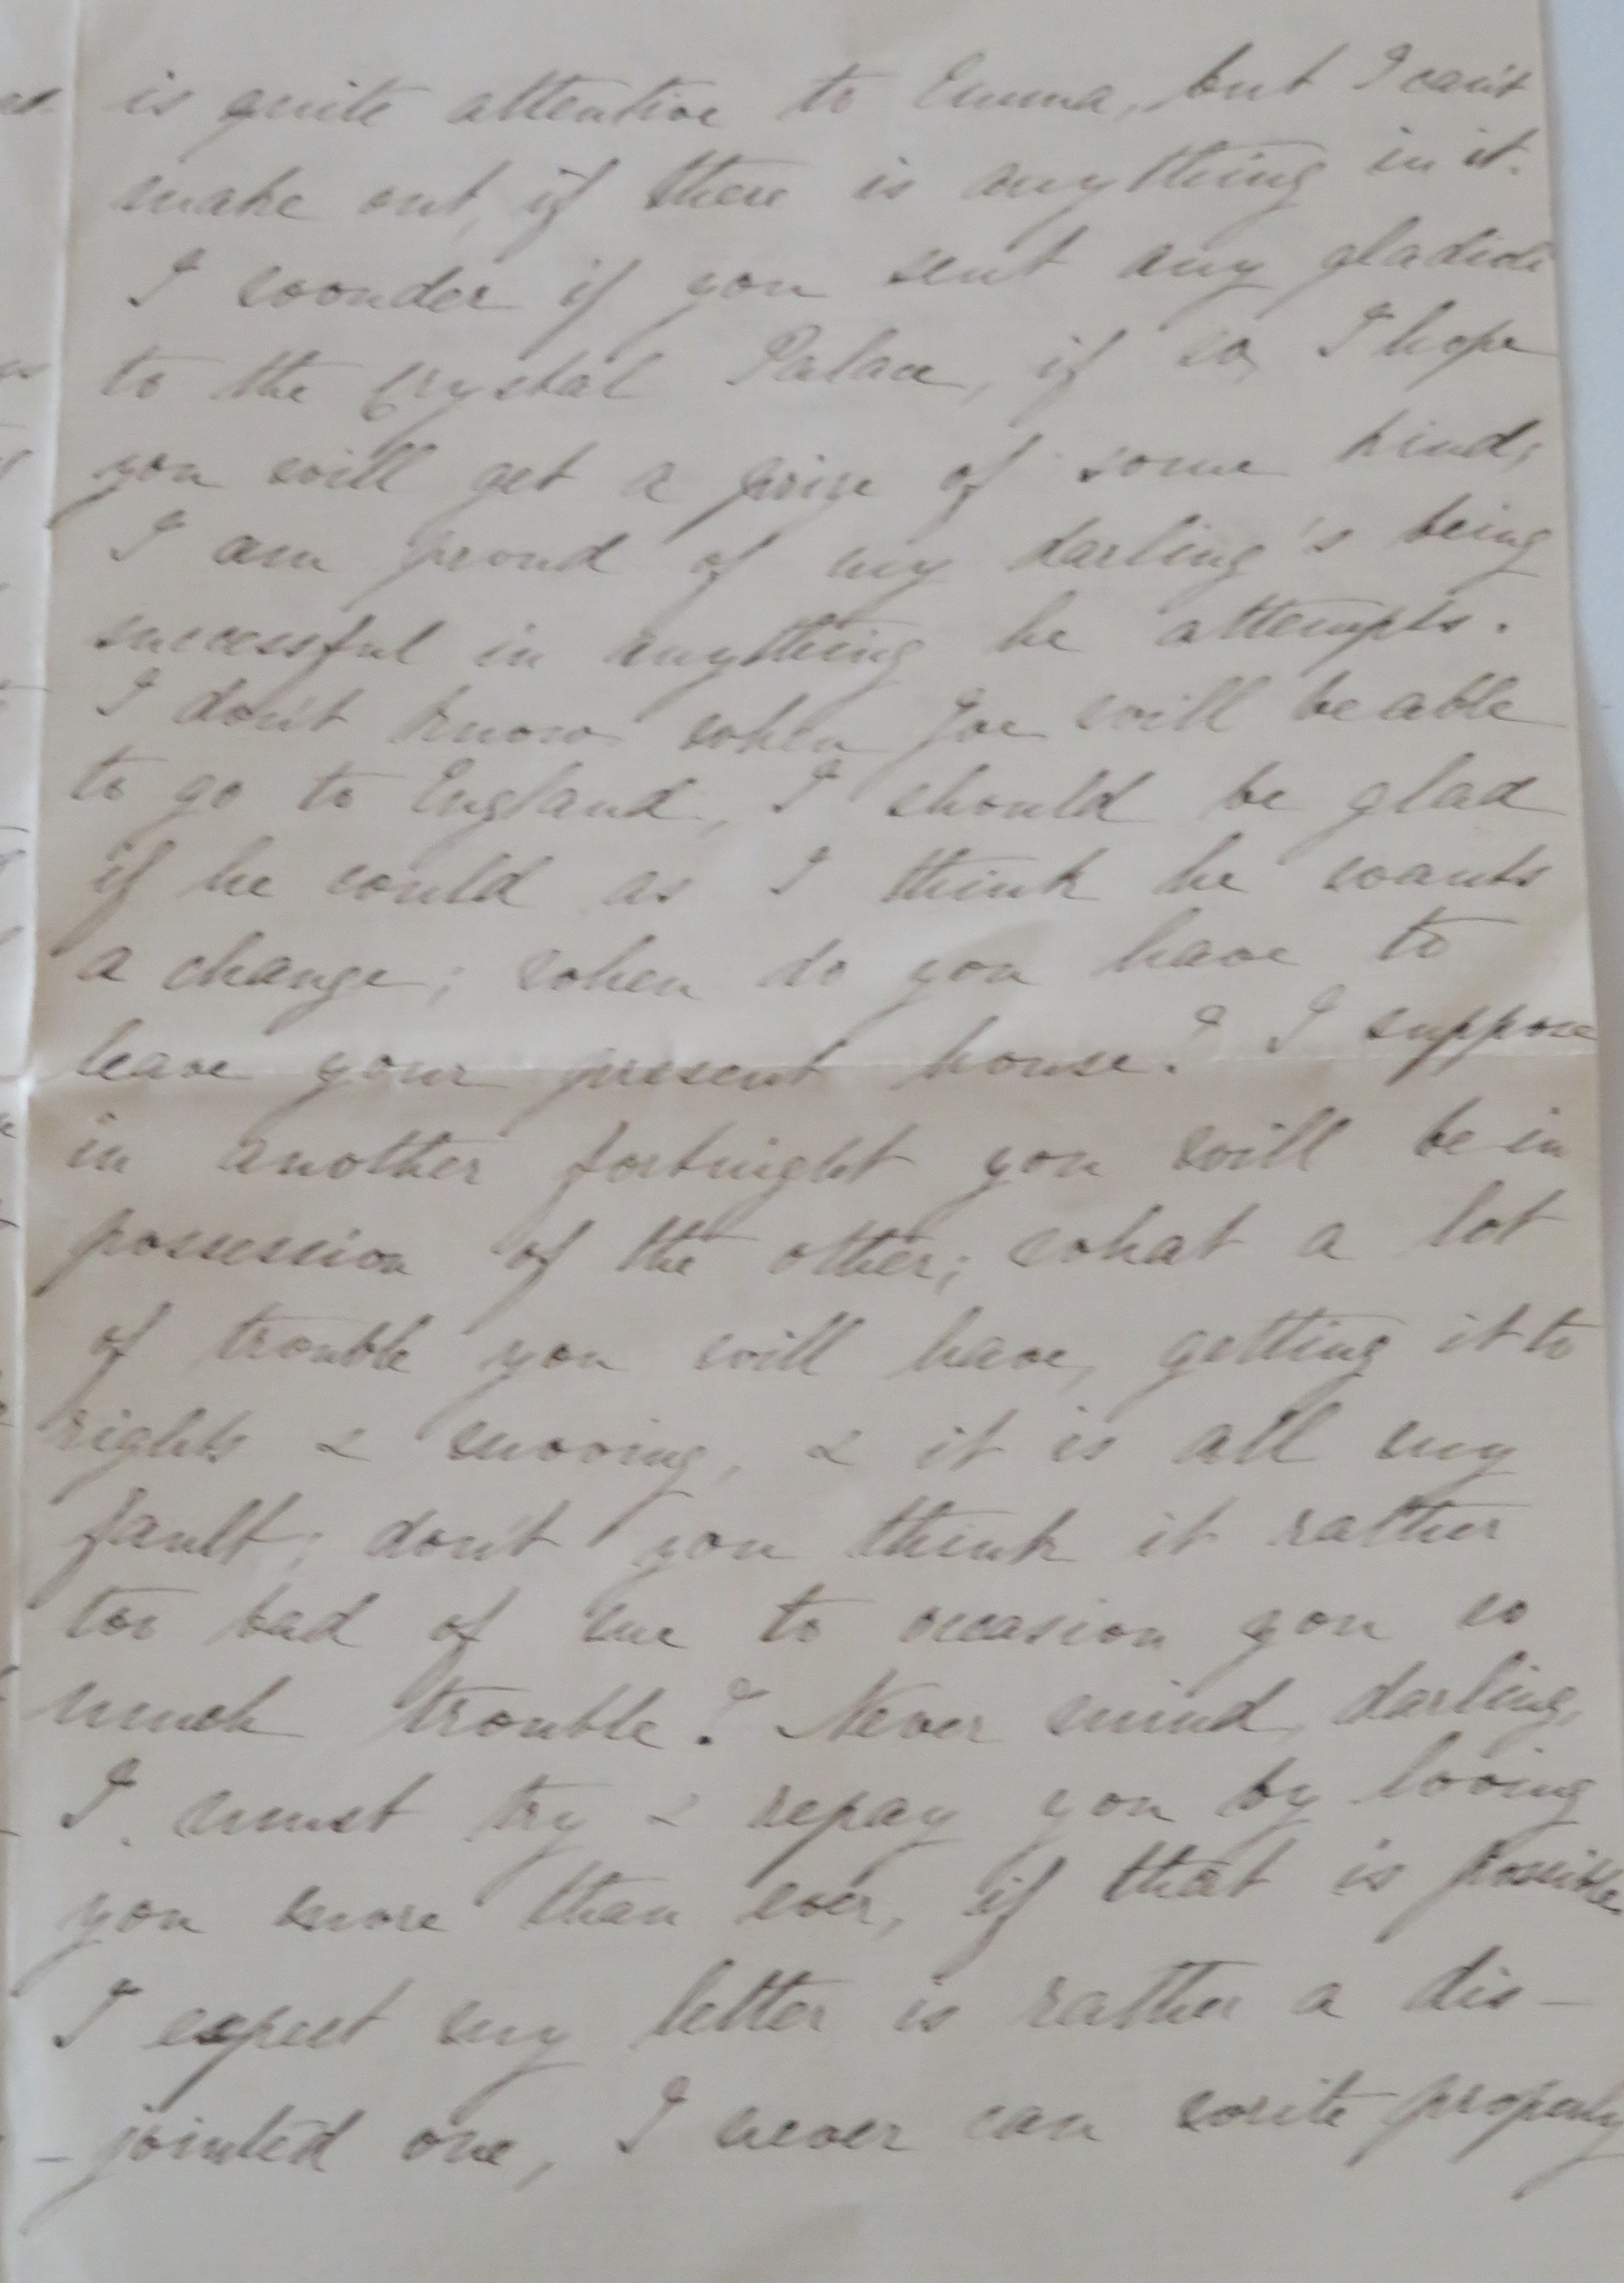 is quite attentive to Emma, but I can't
make out, if there is anything in it.
I wonder if you sent any gladioli
to the Crystal Palace, if so, I hope
you will get a prize of some kind,
I am proud of my darling's being
successful in anything he attempts.
I don't know when Joe will be able
to go to England, I should be glad
if he could as I think he wants
a change; when do you have to
leave your present house? I suppose
in another fortnight you will be in
possession of the other; what a lot
of trouble you will have, getting it to
rights & moving, & it is all my
fault; don't you think it rather
too bad of me to occasion you so
much trouble? Never mind, darling,
I must try & repay you by loving
you more than ever, if that is possible.
I expect my letter is rather a dis-
-jointed one, I never can write properly